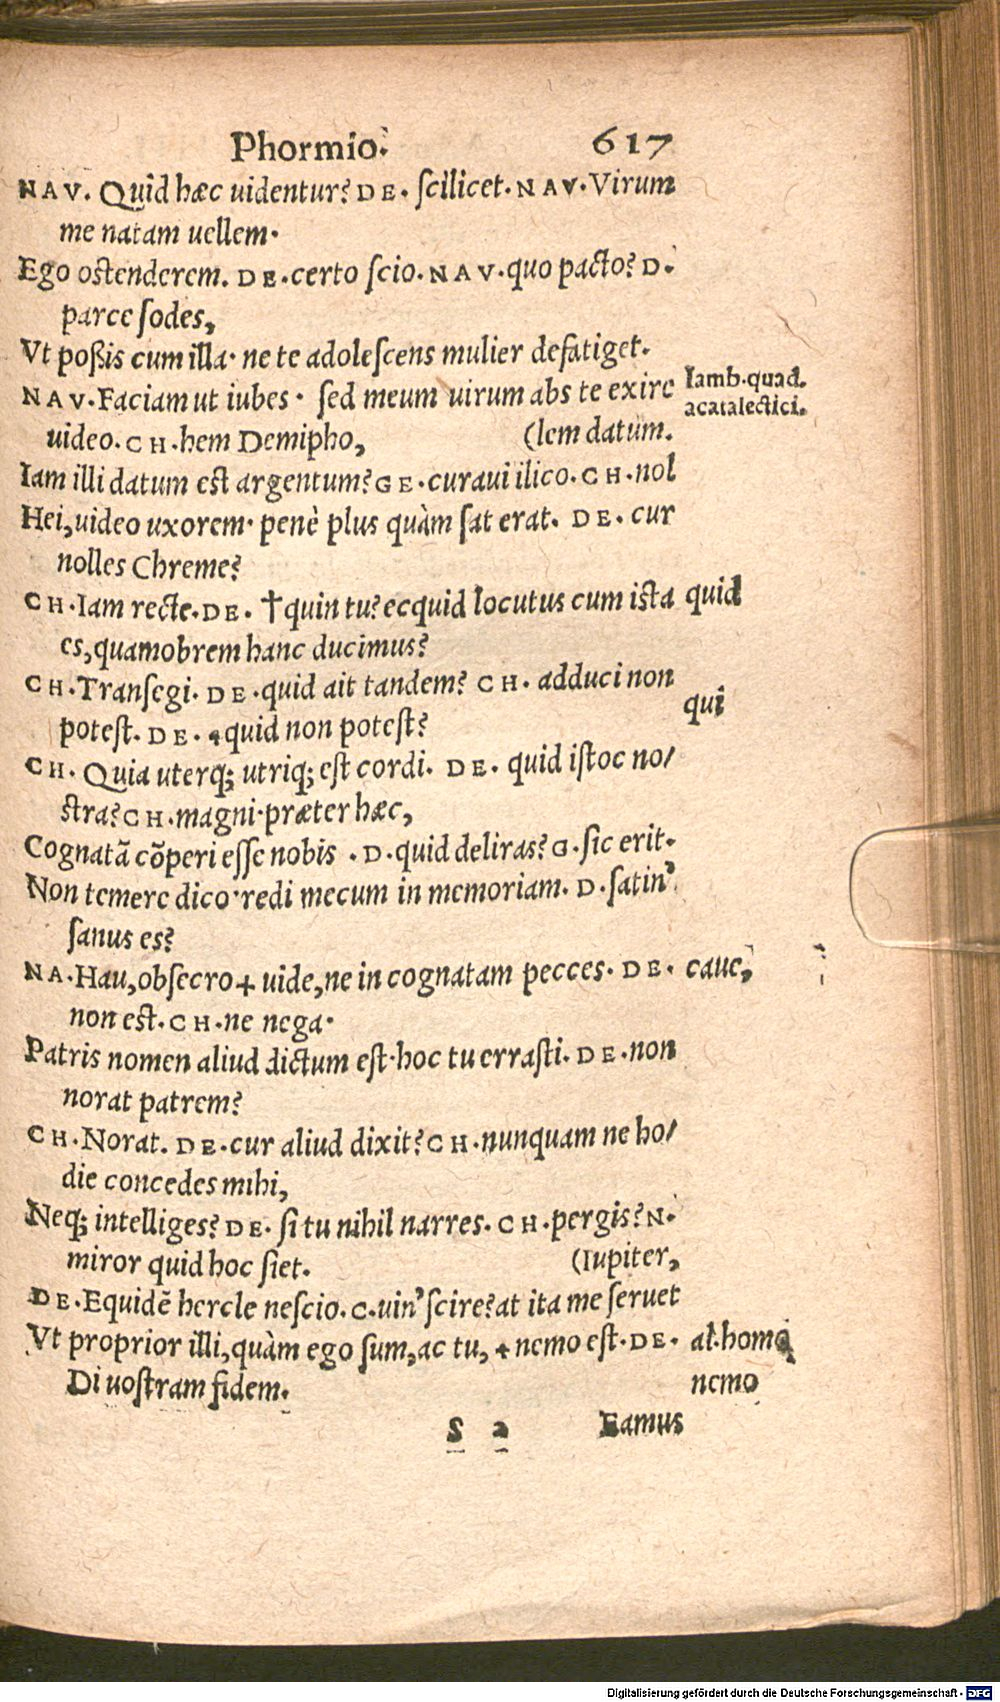 Phormio. 617
NAV. Quid hæc uidentur? DE. ſcilicet. NAV. Virum
me natam uellem.
Ego oſtenderem. DE. certo ſcio. NAV. quo pacto? D.
parce ſodes,
Vt poßis cum illa. ne te adoleſcens mulier defatiget.
NAV. Faciam ut iubes. ſed meum uirum abs te exire Iamb. quad.
acatalectici.
uideo. CH. hem Demipho, (lem datum.
Iam illi datum eſt argentum? GE. curaui ilico. CH. nol
Hei, uideo uxorem. penè plus quàm ſat erat. DE. cur
nolles Chreme?
CH. Iam recte. DE. †quin tu? ecquid locutus cum iſta quid
es, quamobrem hanc ducimus?
CH. Tranſegi. DE. quid ait tandem? CH. adduci non
qui
poteſt. DE. ⁌quid non poteſt?
CH. Quia uterq; utriq; eſt cordi. DE. quid iſtoc no/
ſtra? CH. magni. præter hæc,
Cognatã cõperi eſſe nobis. D. quid deliras? G. ſic erit.
Non temere dico. redi mecum in memoriam. D. ſatin'
ſanus es?
NA. Hau, obſecro + uide, ne in cognatam pecces. DE. caue,
non eſt. CH. ne nega.
Patris nomen aliud dictum eſt. hoc tu erraſti. DE. non
norat patrem?
CH. Norat. DE. cur aliud dixit? CH. nunquam ne ho/
die concedes mihi,
Neq; intelliges? DE. ſi tu nihil narres. CH. pergis? N.
miror quid hoc ſiet. (Iupiter,
DE. Equidẽ hercle neſcio. C. uin' ſcire? at ita me ſeruet
Vt proprior illi, quàm ego ſum, ac tu, ⁌nemo eſt. DE. al. homo
Di uoſtram fidem. nemo
S 2 Eamus
Digitalisierung gefördert durch die Deutsche Forschungsgemeinschaft - DFG